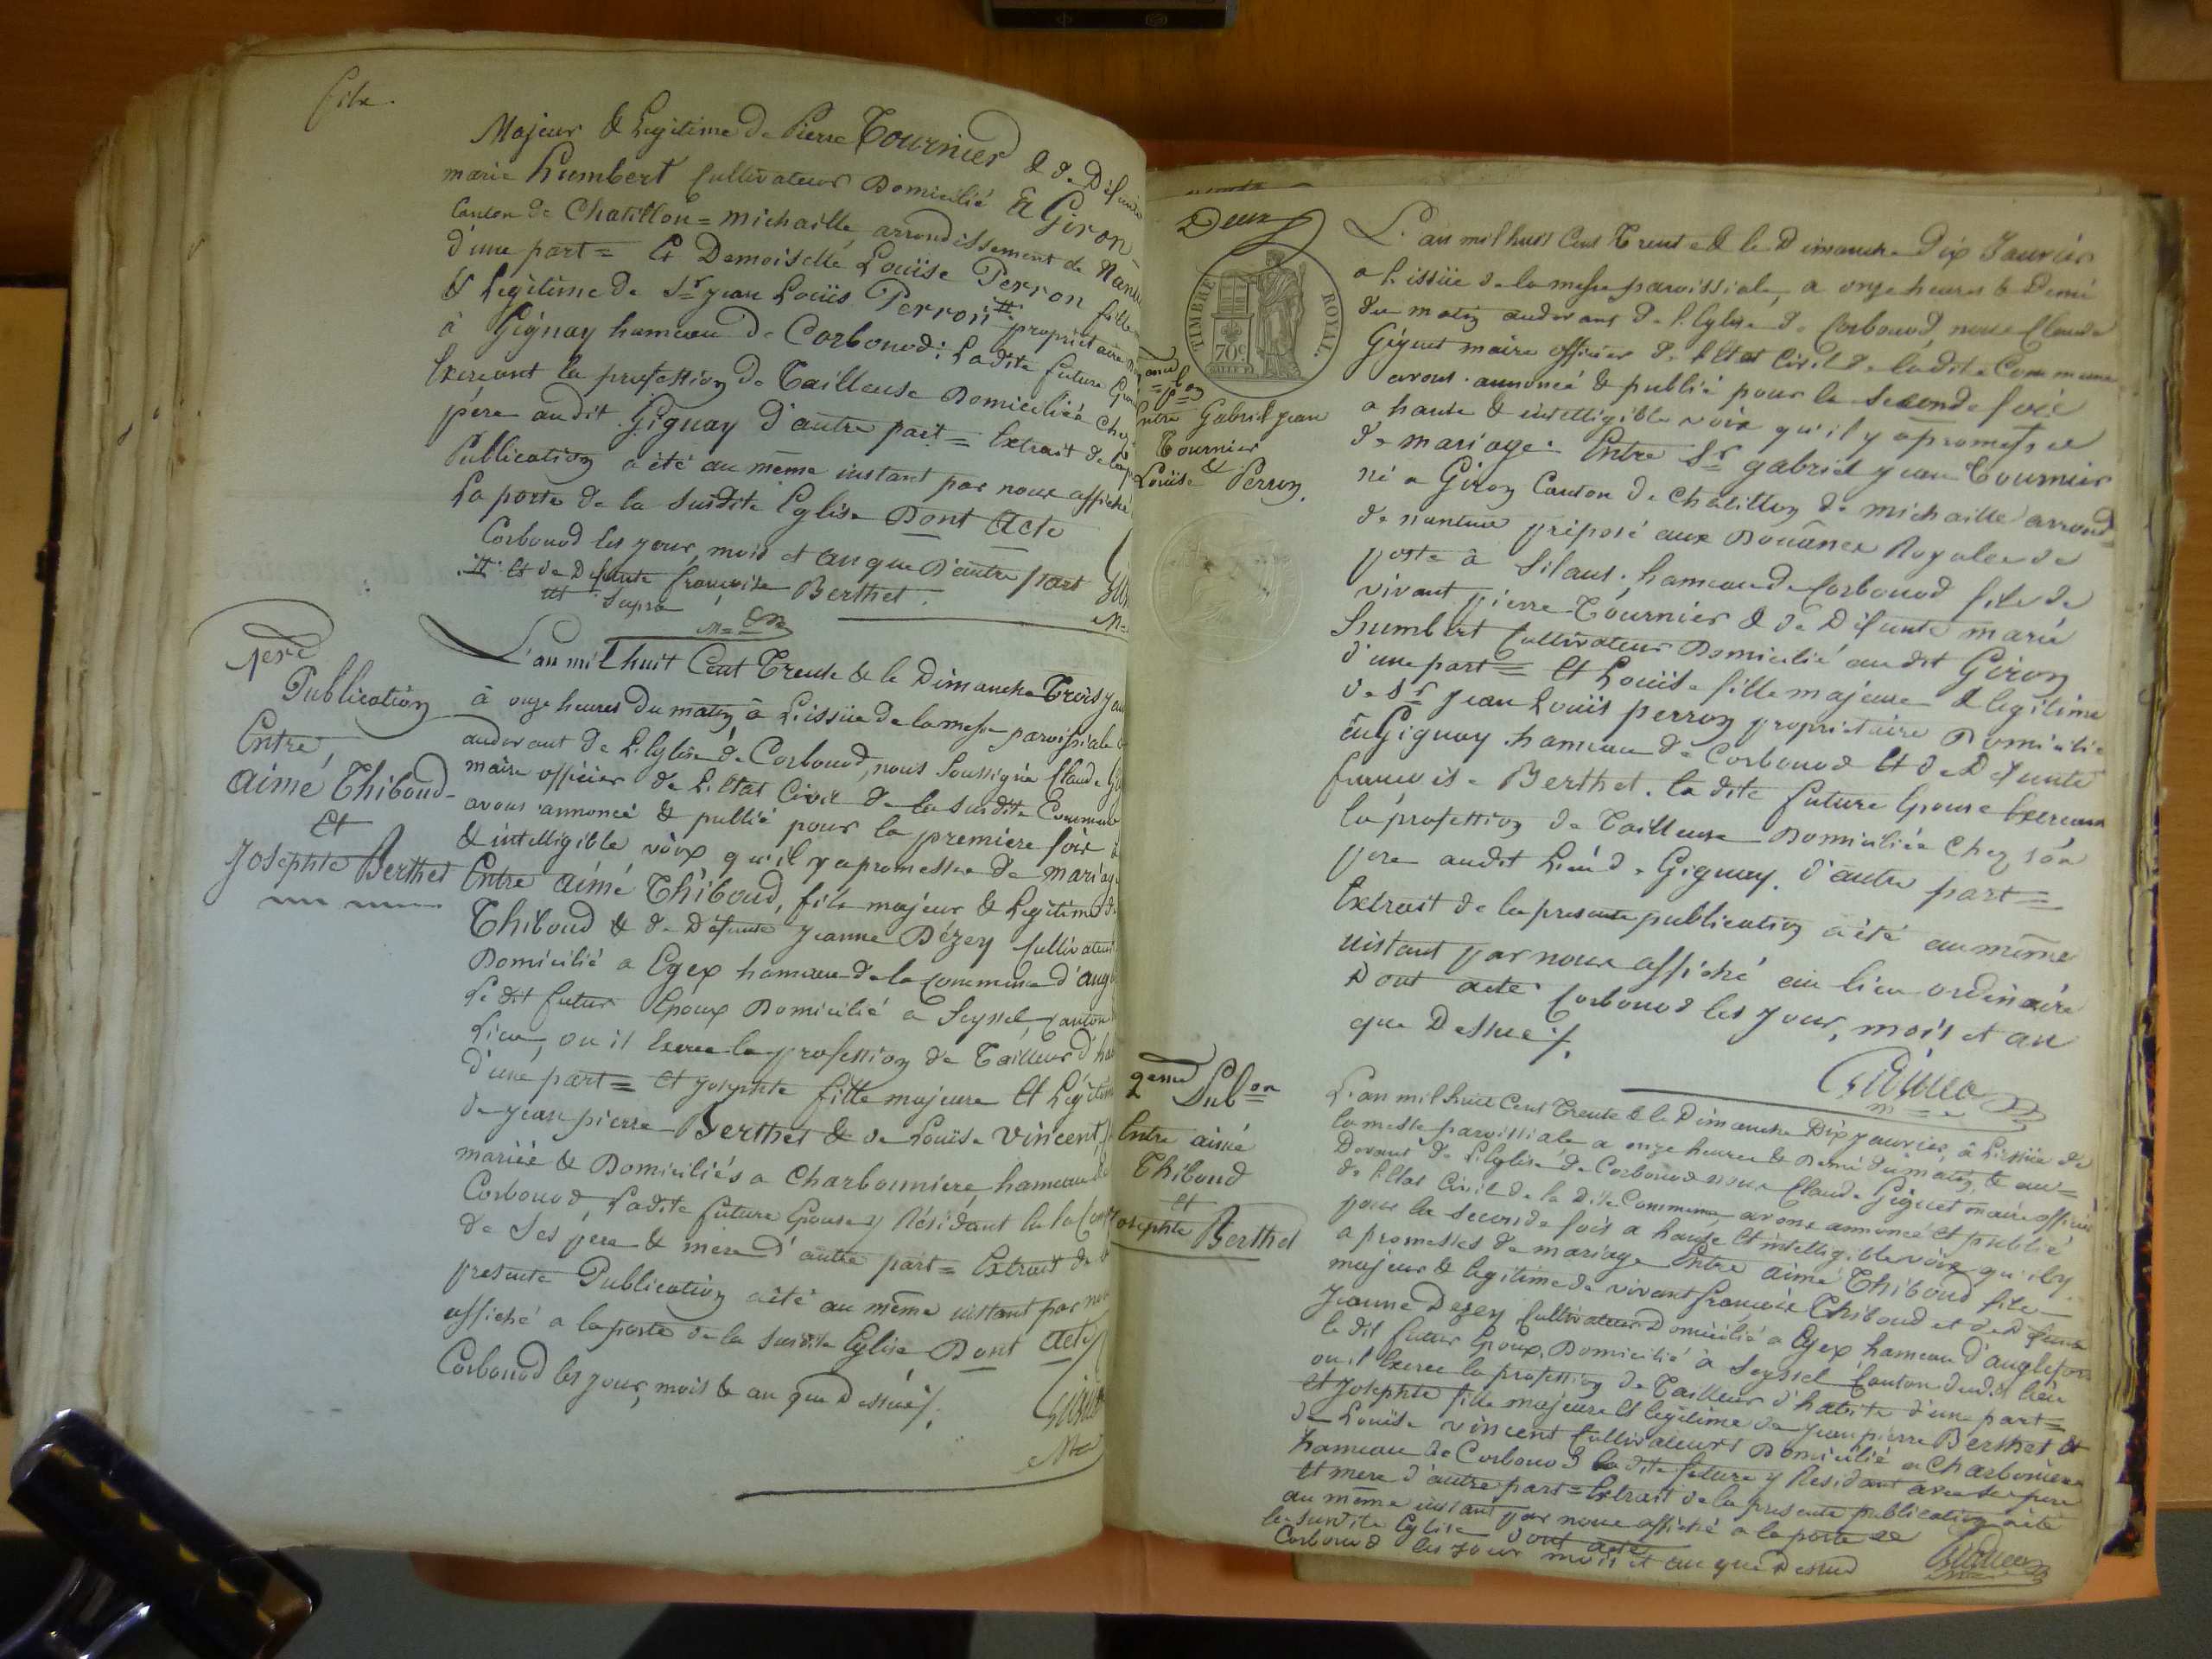 fils.
Majeur & Legitime de Pierre Tournier & de Défunte
marie humbert Cultivateur Domicilié à Giron
Canton de Chatillon = michaille, arrondissement de Nantu
d'une part = Et Demoiselle Louise Perron fille
& Légitime de Sr jean Louis Perron # propriétaire
à Gignay hameau de Corbonod : Ladite future Epou
Exercant la profession de Tailleuse Domiciliée chez
père audit Gignay d'autre part = Extrait de la p
Publication a été au même instant par nous affiché
La porte de la susdite Eglise Dont Acte
Corbonod les jour, mois et an que d'autre part
# Et de Défunte francoise Berthet.
ut supra
1ere
Publication
Entre
aimé Thiboud
Et
Josephte Berthet
L'an mil huit Cent Trente & le Dimanche Trois jan
à onze heures du matin, à L'issüe de la messe paroissiale
audevant de L'Eglise de Corbonod, nous soussigné Claude Gi
maire officier de L'Etat Civil de la susdite Commune
avons annoncé & publié pour la premiere fois à
& intelligible voix qu'il y a promesses de mariage
Entre aimé Thiboud, fils majeur & Legitime de
Thiboud & de Défunte Jeanne Dézey Cultivateur
Domicilié a Egex hameau de la Commune d'angl
Le dit futur Epoux Domicilié a Seyssel, canton
Lieu, ou il Exerce la profession de Tailleur d'ha
d'une part = et Josephte fille majeure Et Légitime
de jean pierre Berthet & de Louïse Vincent,
mariés & Domiciliés a Charbonniere, hameau de
Corbonod, Ladite future Epouse y Résidant en la Comp
de Ses père & mère d'autre part = Extrait de la
presente Publication a été au même instant par nous
affiché a la porte de la susdite Eglise Dont Acte
Corbonod les jour, mois & an que Dessus /.
Deux
TIMBRE ROYAL.
70c
Entre Gabriel jean
Tournier
&
Louise Perron.
L'an mil huit Cent Trente & le Dimanche Dix Janvier
a l'issüe de la messe paroissiale, a onze heures & Demi
du matin audevant de l'Eglise de Corbonod, nous Claude
Giguet maire officier de l'Etat Civil de la dite Commune
avons annoncé & publié pour la seconde fois
a haute & intelligible voix qu'il y a promesses
de mariage : Entre Sr gabriel jean Tournier
né a Giron Canton de chatillon de michaille arrond
de nantua préposé aux Douânes Royales de
poste à Silans, hameau de Corbonod fils de
vivant pierre Tournier & de Défunte marie
humbert Cultivateur Domicilié audit Giron
d'une part = Et Louïse fille majeure & legitime
de Sr jean Louis perron propriétaire Domicilié
à Gignay hameau de Corbonod Et de Défunte
francoise Berthet. la dite future Epouse Exercant
la profession de Tailleuse Domiciliée Chez son
pere audit Lieu de Gignay. d'autre part =
Extrait de la presente publication a été au même
instant par nous affiché au lieu ordinaire
Dont acte Corbonod les jour, mois et an
que Dessus /.
2eme Pubon
Entre aimé
Thiboud
et
Josephte Berthet
L'an mil huit Cent Trente & le Dimanche Dix janvier, à L'issüe de
la messe paroissiale a onze heures & Demi du matin, & au=
Devant de L'Eglise de Corbonod nous Claude Giguet maire officier
de l'Etat Civil de la Dite Commune, avons annoncé et publié
pour la seconde fois a haute Et intelligible voix qu'il y
a promesses de mariage Entre aimé Thiboud fils
majeur & legitime de vivant françois Thiboud et de Défunte
Jeanne Dezey Cultivateur Domicilié a Egex hameau d'anglefort
le dit futur Epoux. Domicilié à Seyssel Canton dudit lieu
ou il Exerce la profession de Tailleur d'habits d'une part =
et Josephte fille majeure Et legitime de jean pierre Berthet et
de Louïse vincent Cultivateurs Domicilié a Charboniere
hameau de Corbonod la dite future y Residant avec ses pere
et mere d'autre part = Extrait de la presente publication a été
au même instant par nous affiché a la porte de
la susdite Eglise dont acte
Corbonod les jour mois et an que Dessus